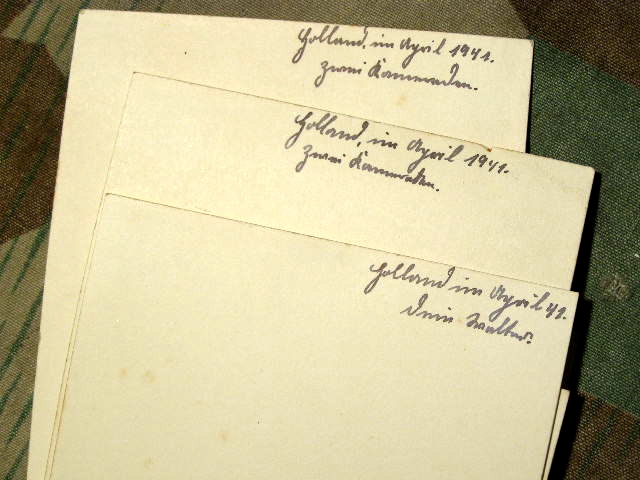 Holland, im April 1941.
Zwei Kameraden.
Holland, im April 1941.
Zwei Kameraden.
Holland im April 41.
Dein Walter.